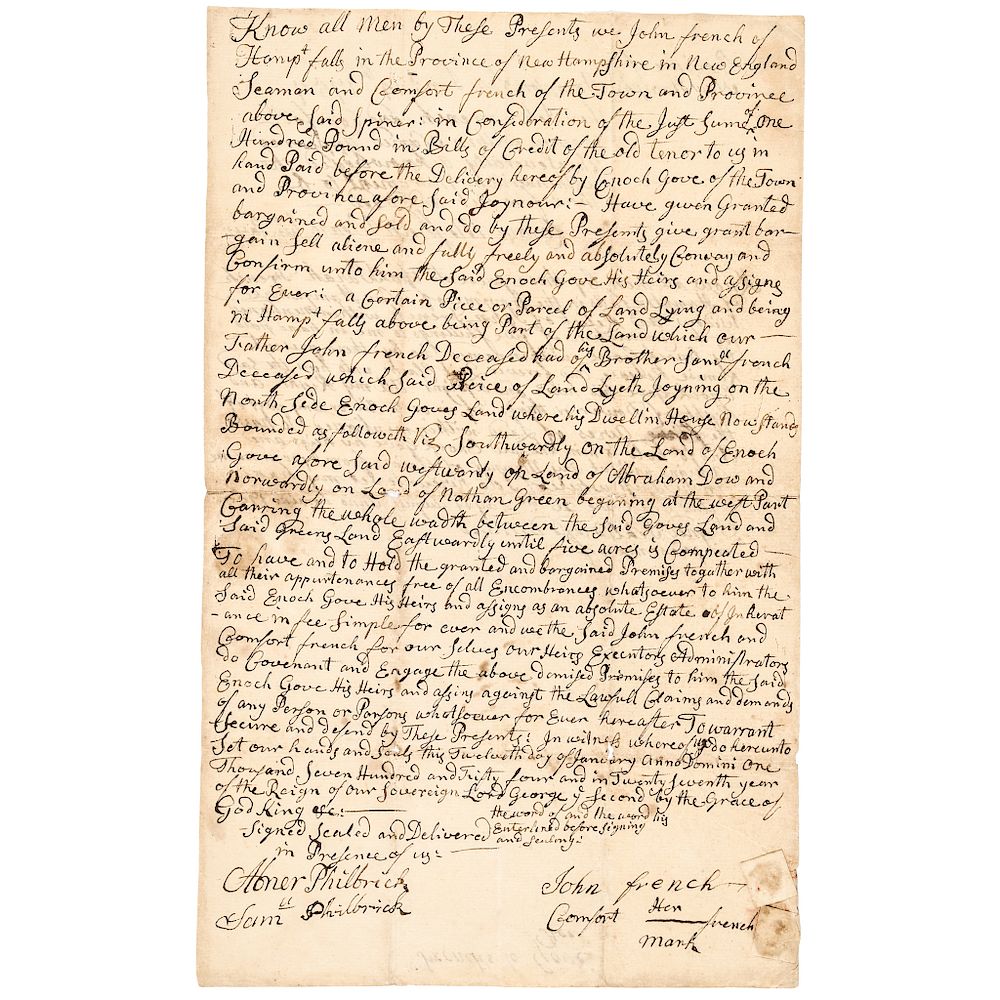 Know all Men by These Presents we John french of
Hampt falls in the Province of New Hampshire in New England
Seaman and Comfort french of the Town and Province
above Said Spiner: in Consideration of the Just Sum of One
Hundred Pound in Bills of Credit of the old tenor to us in
hand Paid before the Delivery hereof by Enoch Gove of the Town
and Province afore Said Joynour:- Have given Granted
bargained and Sold and do by these Presents give grant bar-
-gain Sell aliene and fully freely and absolutely Convay and
Confirm unto him the Said Enoch Gove His Heirs and assigns
for Ever: a Certain Piece or Parcel of Land Lying and being
in Hampt falls above being Part of the Land which our
Father John french Deceased had of his Brother Samll french
Deceased which Said Peice of Land Lyeth Joyning on the
North Side Enoch Goves Land where his Dwellin House Now Stands
Bounded as followeth Viz Southwardly on the Land of Enoch
Gove afore Said westwardly on Land of Abraham Dow and
Norwardly on Land of Nathan Green begining at the west Part
Carring the whole wadth between the Said Goves Land and
Said Greens Land Eastwardly until five acres is Compeated
To have and to Hold the granted and bargained Premises togather with
all their appurtenances free of all Encombrances whatsoever to him the
Said Enoch Gove His Heirs and assigns as an absolute Estate of Inherat
-ance in fee Simple for ever and we the Said John french and
Comfort french for our Selves our Heirs Executors Administrators
do Covenant and Engage the above demised Premises to him the Said
Enoch Gove His Heirs and assins against the Lawfull Claims and demands
of any Person or Parsons whatsoever for Ever hereafter To warrant
Secure and defend by These Presents: In witness whereof we do hereunto
Set our hands and Seals this Twelfth day of January Anno Domini One
Thousand Seven Hundred and Fifty four and in Twenty Seventh year
of the Reign of our Sovereign Lord George ye Second by the Grace of
God King &c:
the word of and the word his
Enterlined before Signing
and Sealing:
Signed Sealed and Delivered
in Presence of us:
Abner Philbrick
Samll Philbrick
John french
Comfort Her french
mark